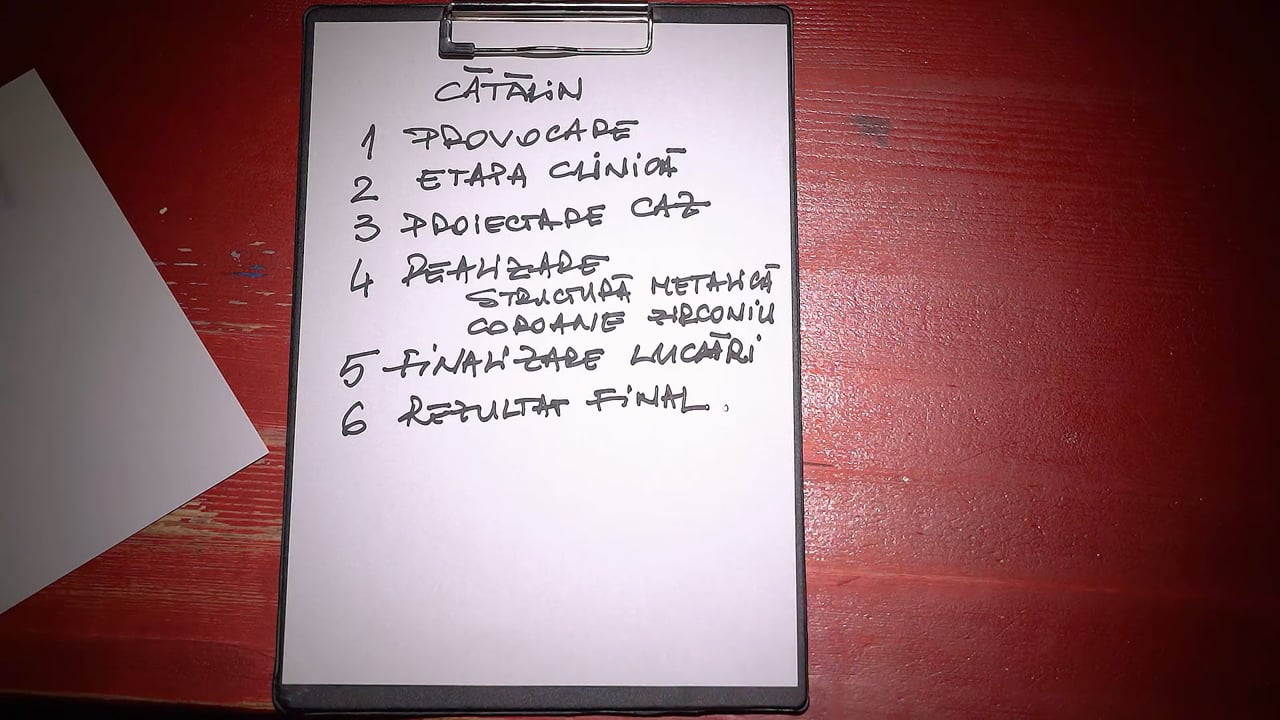 CĂTĂLIN
1 PROVOCARE
2 ETAPA CLINICĂ
3 PROIECTARE CAZ
4 REALIZARE
STRUCTURĂ METALICĂ
COROANE ZIRCONIU
5 FINALIZARE LUCRĂRI
6 REZULTAT FINAL.